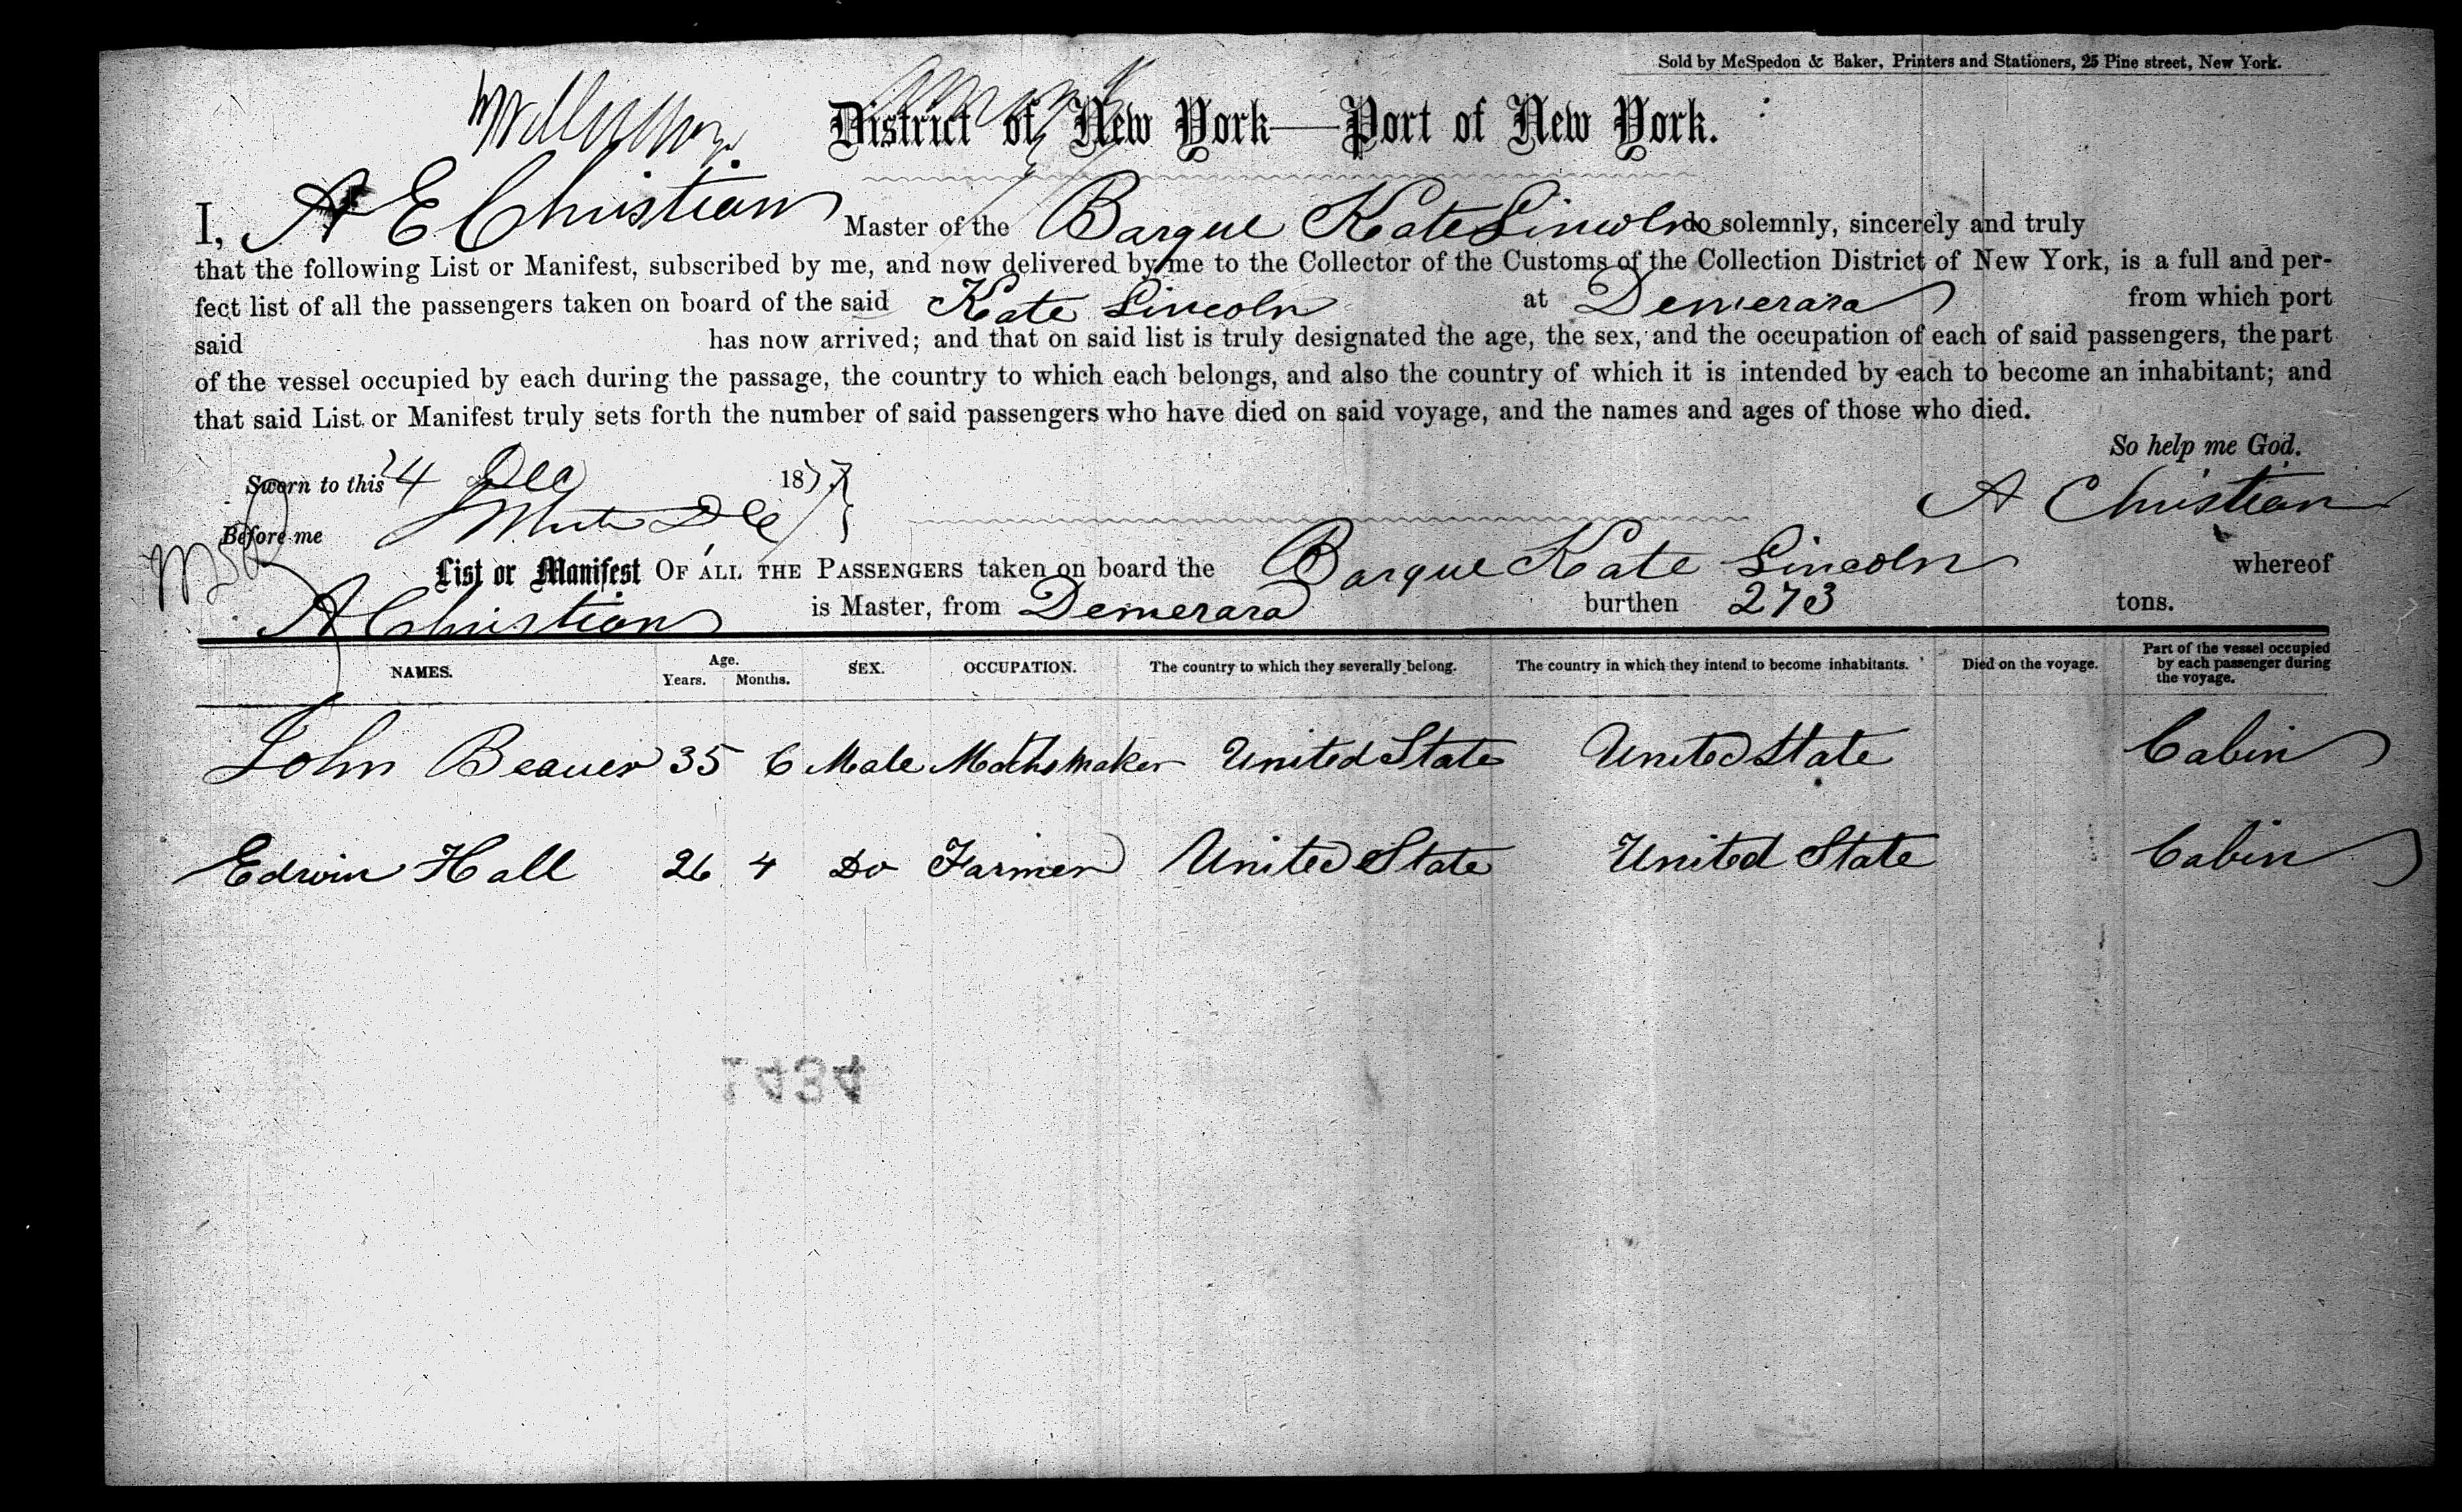 Sold by McSpedon & Baker, Printers and Stationers, 25 Pine street, New York.
District of New York—Port of New York.
I, A E Christian Master of the Barque Kate Lincoln do solemnly, sincerely and truly
that the following List or Manifest, subscribed by me, and now delivered by me to the Collector of the Customs of the Collection District of New York, is a full and per-
fect list of all the passengers taken on board of the said Kate Lincoln at Demerara from which port
said has now arrived; and that on said list is truly designated the age, the sex, and the occupation of each of said passengers, the part
of the vessel occupied by each during the passage, the country to which each belongs, and also the country of which it is intended by each to become an inhabitant; and
that said List or Manifest truly sets forth the number of said passengers who have died on said voyage, and the names and ages of those who died.
So help me God.
Sworn to this 24 Dec 1857
A Christian
Before me
List or Manifest OF ALL THE PASSENGERS taken on board the Barque Kate Lincoln whereof
A Christian is Master, from Demerara burthen 273 tons.
NAMES. Age. Years. Months. SEX. OCCUPATION. The country to which they severally belong. The country in which they intend to become inhabitants. Died on the voyage. Part of the vessel occupied by each passenger during the voyage.
John Beaver 35 6 Male United State United State Cabin
Edwin Hall 26 4 Do Farmer United State United State Cabin
1434